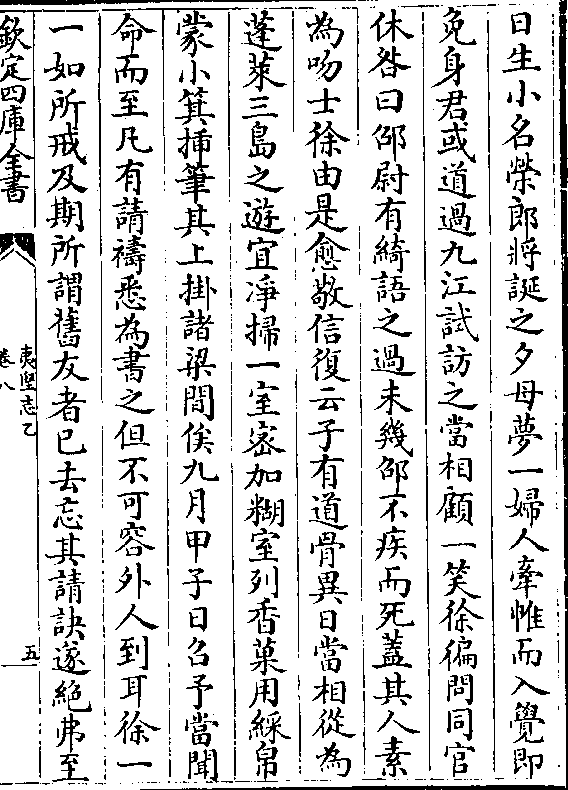 日生小名榮郎將誕之夕母夢一婦人牽帷而入覺即
免身君或道過九江試訪之當相顧一笑徐徧問同官
休咎曰邵尉有綺語之過未幾邵不疾而死蓋其人素
為吻士徐由是愈敬信復云子有道骨異日當相從為
蓬萊三島之遊宜淨掃一室密加糊室列香菓用綵帛
蒙小箕插筆其上掛諸梁間俟九月甲子日召予當聞
命而至凡有請禱悉為書之但不可容外人到耳徐一
一如所戒及期所謂舊友者已去忘其請訣遂絕弗至
欽定四庫全書
夷堅志乙
卷八
五